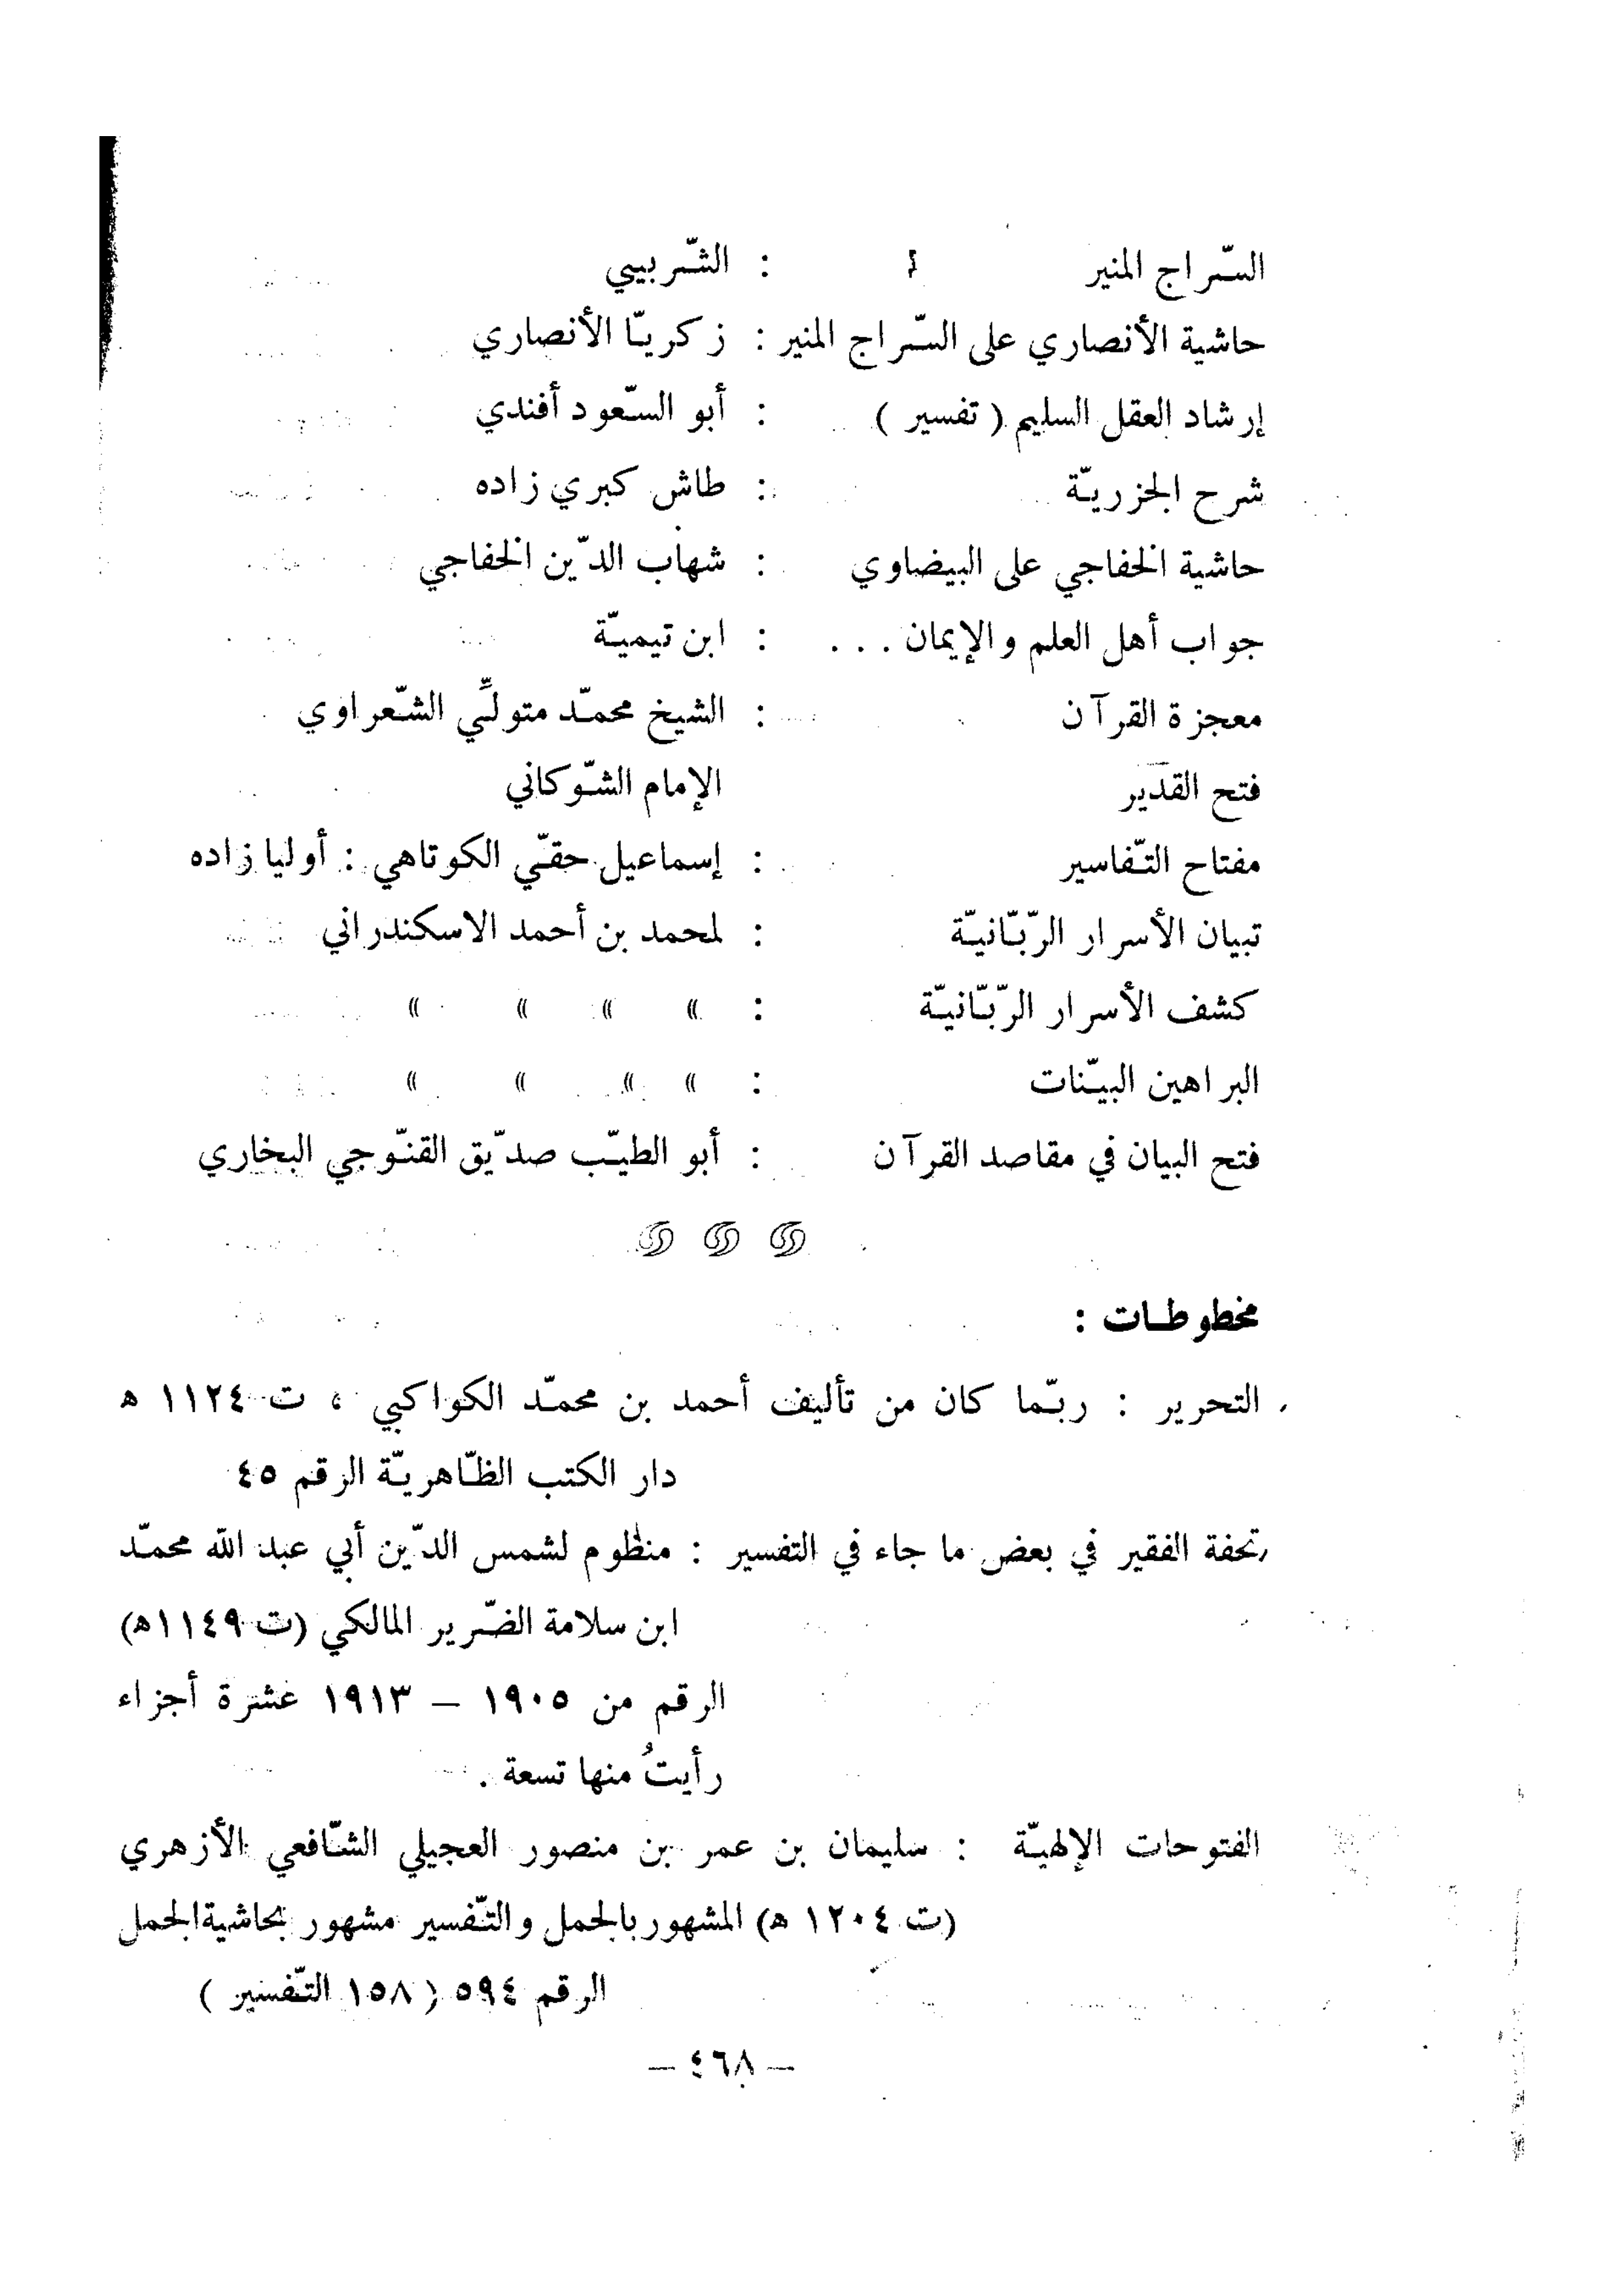 السّراج المنير : الشّربيبي
حاشية الأنصاري على السّراج المنير : زكريّا الأنصاري
إرشاد العقل السليم ( تفسير ) : أبو السّعود أفندي
شرح الجزريّة : طاش كبري زاده
حاشية الخفاجي على البيضاوي : شهاب الدّين الخفاجي
جواب أهل العلم والإيمان . . . : ابن تيميّة
معجزة القرآن : الشيخ محمّد متولّي الشّعراوي
فتح القدير الإمام الشّوكاني
مفتاح التّفاسير : إسماعيل حقّي الكوتاهي : أوليا زاده
تبيان الأسرار الرّبّانيّة : لمحمد بن أحمد الاسكندراني
كشف الأسرار الرّبّانيّة : » » » »
البراهين البيّنات : » » » »
فتح البيان في مقاصد القرآن : أبو الطيّب صدّيق القنّوجي البخاري
مخطوطات :
التحرير : ربّما كان من تأليف أحمد بن محمّد الكواكبي ، ت ١١٢٤ ه
دار الكتب الظّاهريّة الرقم ٤٥
تحفة الفقير في بعض ما جاء في التفسير : منظوم لشمس الدّين أبي عبد الله محمّد
ابن سلامة الضّرير المالكي (ت ١١٤٩ه)
الرقم من ١٩٠٥ – ١٩١٣ عشرة أجزاء
رأيتُ منها تسعة .
الفتوحات الإلهيّة : سليمان بن عمر بن منصور العجيلي الشّافعي الأزهري
(ت ١٢٠٤ ه) المشهور بالجمل والتّفسير مشهور بحاشية الجمل
الرقم ٥٩٤ ( ١٥٨ التّفسير )
– ٤٦٨ –